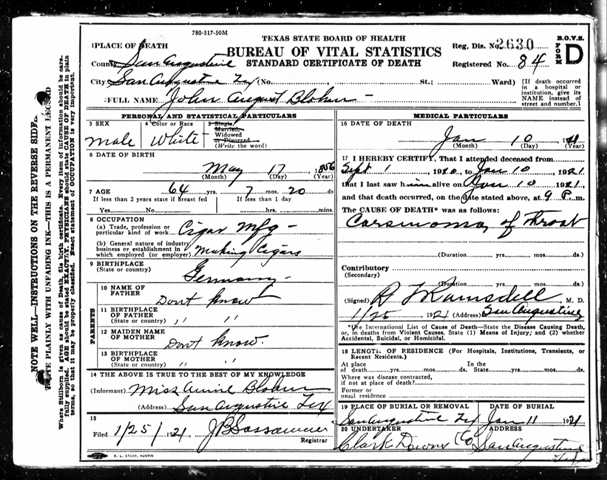 780-317-50M
TEXAS STATE BOARD OF HEALTH
BUREAU OF VITAL STATISTICS
STANDARD CERTIFICATE OF DEATH
Reg. Dis. No. 2630
Registered No. 84
B.O.V.S.
FORM
D
1 PLACE OF DEATH
County San Augustine
City San Augustine Tex (No. St.; Ward)
[If death occurred in a hospital or institution, give its NAME instead of street and number.]
2 FULL NAME John August Blohm
PERSONAL AND STATISTICAL PARTICULARS
3 SEX
Male
4 Color or Race
White
5 Single,
Married,
Widowed
or Divorced
(Write the word)
6 DATE OF BIRTH
May 17 1856
(Month) (Day) (Year)
7 AGE 64 yrs. 7 mos. 20 ds.
If less than 2 years state if breast fed
If less than 1 day
Yes No hrs. mins.
8 OCCUPATION
(a) Trade, profession or particular kind of work Cigar Mfg
(b) General nature of industry business or establishment in which employed (or employer) Making Cigars
9 BIRTHPLACE
(State or country) Germany
PARENTS
10 NAME OF FATHER Dont know
11 BIRTHPLACE OF FATHER
(State or country) " "
12 MAIDEN NAME OF MOTHER Dont know.
13 BIRTHPLACE OF MOTHER
(State or country) " "
14 THE ABOVE IS TRUE TO THE BEST OF MY KNOWLEDGE
(Informant) Miss Blohm
(Address) San Augustine Tex
15
Filed 1/25/1921
Registrar
MEDICAL PARTICULARS
16 DATE OF DEATH
Jan 10 1921
(Month) (Day) (Year)
17 I HEREBY CERTIFY, That I attended deceased from
Sept 1 1920 to Jan 10 1921
that I last saw him alive on Jan 10 1921
and that death occurred, on the date stated above, at 9 P.m.
The CAUSE OF DEATH* was as follows:
Carsinoma of Throat
(Duration yrs. mos. ds.)
Contributory
(Secondary)
(Duration yrs. mos. ds.)
(Signed) Ramsdell M. D.
1/25 1921 (Address) San Augustine
*The International List of Cause of Death—State the Disease Causing Death, or, in deaths from Violent Causes, State (1) Means of Injury; and (2) whether Accidental, Suicidal, or Homicidal.
18 LENGTH OF RESIDENCE (For Hospitals, Institutions, Transients, or Recent Residents).
At place of death yrs. mos. ds. In the State yrs. mos. ds.
Where was disease contracted, if not at place of death?
Former or usual residence
19 PLACE OF BURIAL OR REMOVAL
San Augustine Tex
DATE OF BURIAL
Jan 11 1921
20 UNDERTAKER
Clark Downs Co
ADDRESS
San Augustine
NOTE WELL—INSTRUCTIONS ON THE REVERSE SIDE.
WRITE PLAINLY WITH UNFADING INK—THIS IS A PERMANENT RECORD